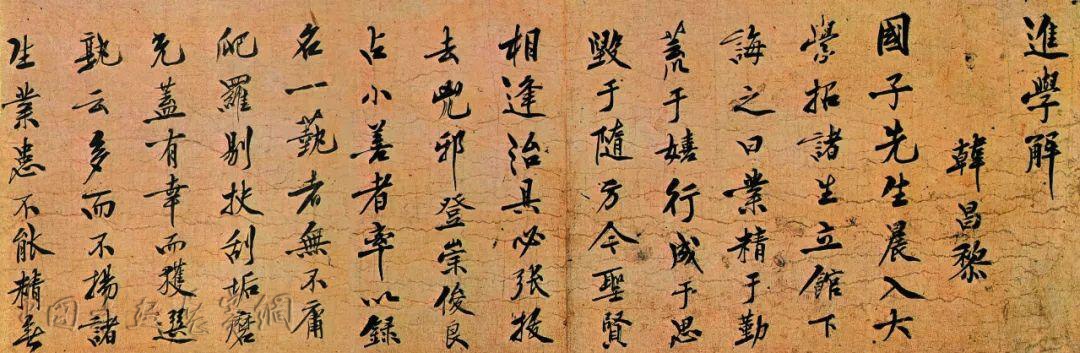 進學解
韓昌黎
國子先生晨入大
學招諸生立館下
誨之曰業精于勤
荒于嬉行成于思
毀于隨方今聖賢
相逢治具必張拔
去兇邪登崇俊良
占小善者率以録
名一藝者無不庸
爬羅剔抉刮垢磨
光蓋有幸而獲選
孰云多而不揚諸
生業患不能精無